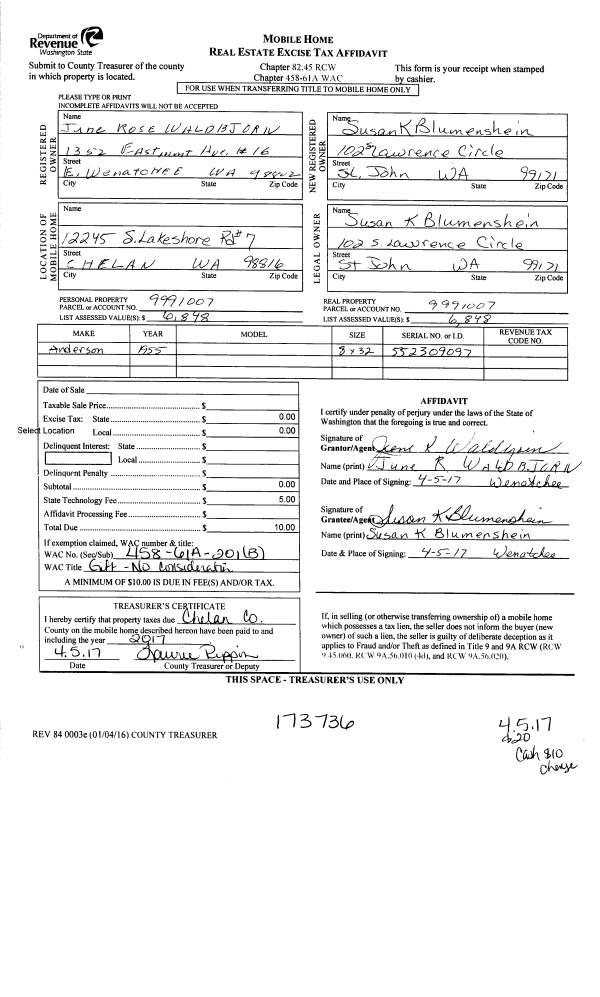 Department of
Revenue
Washington State
MOBILE HOME
REAL ESTATE EXCISE TAX AFFIDAVIT
Submit to County Treasurer of the county
in which property is located.
Chapter 82.45 RCW
Chapter 458-61A WAC
This form is your receipt when stamped
by cashier.
FOR USE WHEN TRANSFERRING TITLE TO MOBILE HOME ONLY
PLEASE TYPE OR PRINT
INCOMPLETE AFFIDAVITS WILL NOT BE ACCEPTED
REGISTERED
OWNER
Name
JUNE ROSE WALDBJORN
1352 Eastmont Ave. #16
Street
E. WENATCHEE WA 98802
City State Zip Code
NEW REGISTERED
OWNER
Name
Susan K Blumenshein
102 S Lawrence Circle
Street
St. John WA 99171
City State Zip Code
LOCATION OF
MOBILE HOME
Name
12245 S. Lakeshore Rd #7
Street
CHELAN WA 98816
City State Zip Code
LEGAL OWNER
Name
Susan K Blumenshein
102 S. Lawrence Circle
Street
St John WA 99171
City State Zip Code
PERSONAL PROPERTY
PARCEL or ACCOUNT NO. 9991007
LIST ASSESSED VALUE(S): $ 6,848
REAL PROPERTY
PARCEL or ACCOUNT NO. 9991007
LIST ASSESSED VALUE(S): $ 6,848
MAKE YEAR MODEL SIZE SERIAL NO. or I.D. REVENUE TAX
CODE NO.
Anderson 1955 8 x 32 552309097
Date of Sale
Taxable Sale Price $
Excise Tax: State $ 0.00
Select Location Local $ 0.00
Delinquent Interest: State $
Local $
Delinquent Penalty $
Subtotal $ 0.00
State Technology Fee $ 5.00
Affidavit Processing Fee $
Total Due $ 10.00
If exemption claimed, WAC number & title:
WAC No. (Sec/Sub) 458-61A-201(B)
WAC Title Gift - No Consideration
A MINIMUM OF $10.00 IS DUE IN FEE(S) AND/OR TAX.
AFFIDAVIT
I certify under penalty of perjury under the laws of the State of
Washington that the foregoing is true and correct.
Signature of
Grantor/Agent June R Waldbjorn
Name (print) June R. WALDBJORN
Date and Place of Signing: 4-5-17 Wenatchee
Signature of
Grantee/Agent Susan K Blumenshein
Name (print) Susan K Blumenshein
Date & Place of Signing: 4-5-17 Wenatchee
TREASURER'S CERTIFICATE
I hereby certify that property taxes due Chelan Co.
County on the mobile home described hereon have been paid to and
including the year 2017
4.5.17 Laurie Pippin
Date County Treasurer or Deputy
If, in selling (or otherwise transferring ownership of) a mobile home
which possesses a tax lien, the seller does not inform the buyer (new
owner) of such a lien, the seller is guilty of deliberate deception as it
applies to Fraud and/or Theft as defined in Title 9 and 9A RCW (RCW
9.45.060, RCW 9A.56.010 (4d), and RCW 9A.56.020).
THIS SPACE - TREASURER'S USE ONLY
173736
REV 84 0003e (01/04/16) COUNTY TREASURER
4.5.17
$20
Cash $10
change